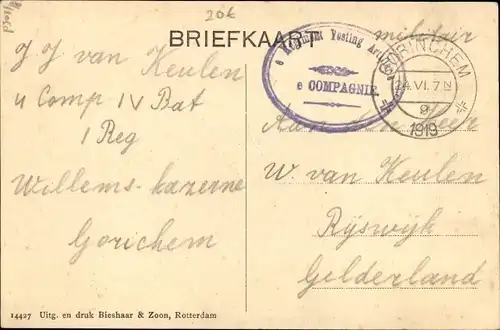 20€
BRIEFKAART
militair
e Regiment Vesting Artillerie
e COMPAGNIE.
GORINCHEM
24.VI. 7
1919
J J van Keulen
4 Comp IV Bat
1 Reg
Willems-kazerne
Gorichem
Aan den Heer
W. van Keulen
Ryswyk
Gelderland
14427 Uitg. en druk Bieshaar & Zoon, Rotterdam